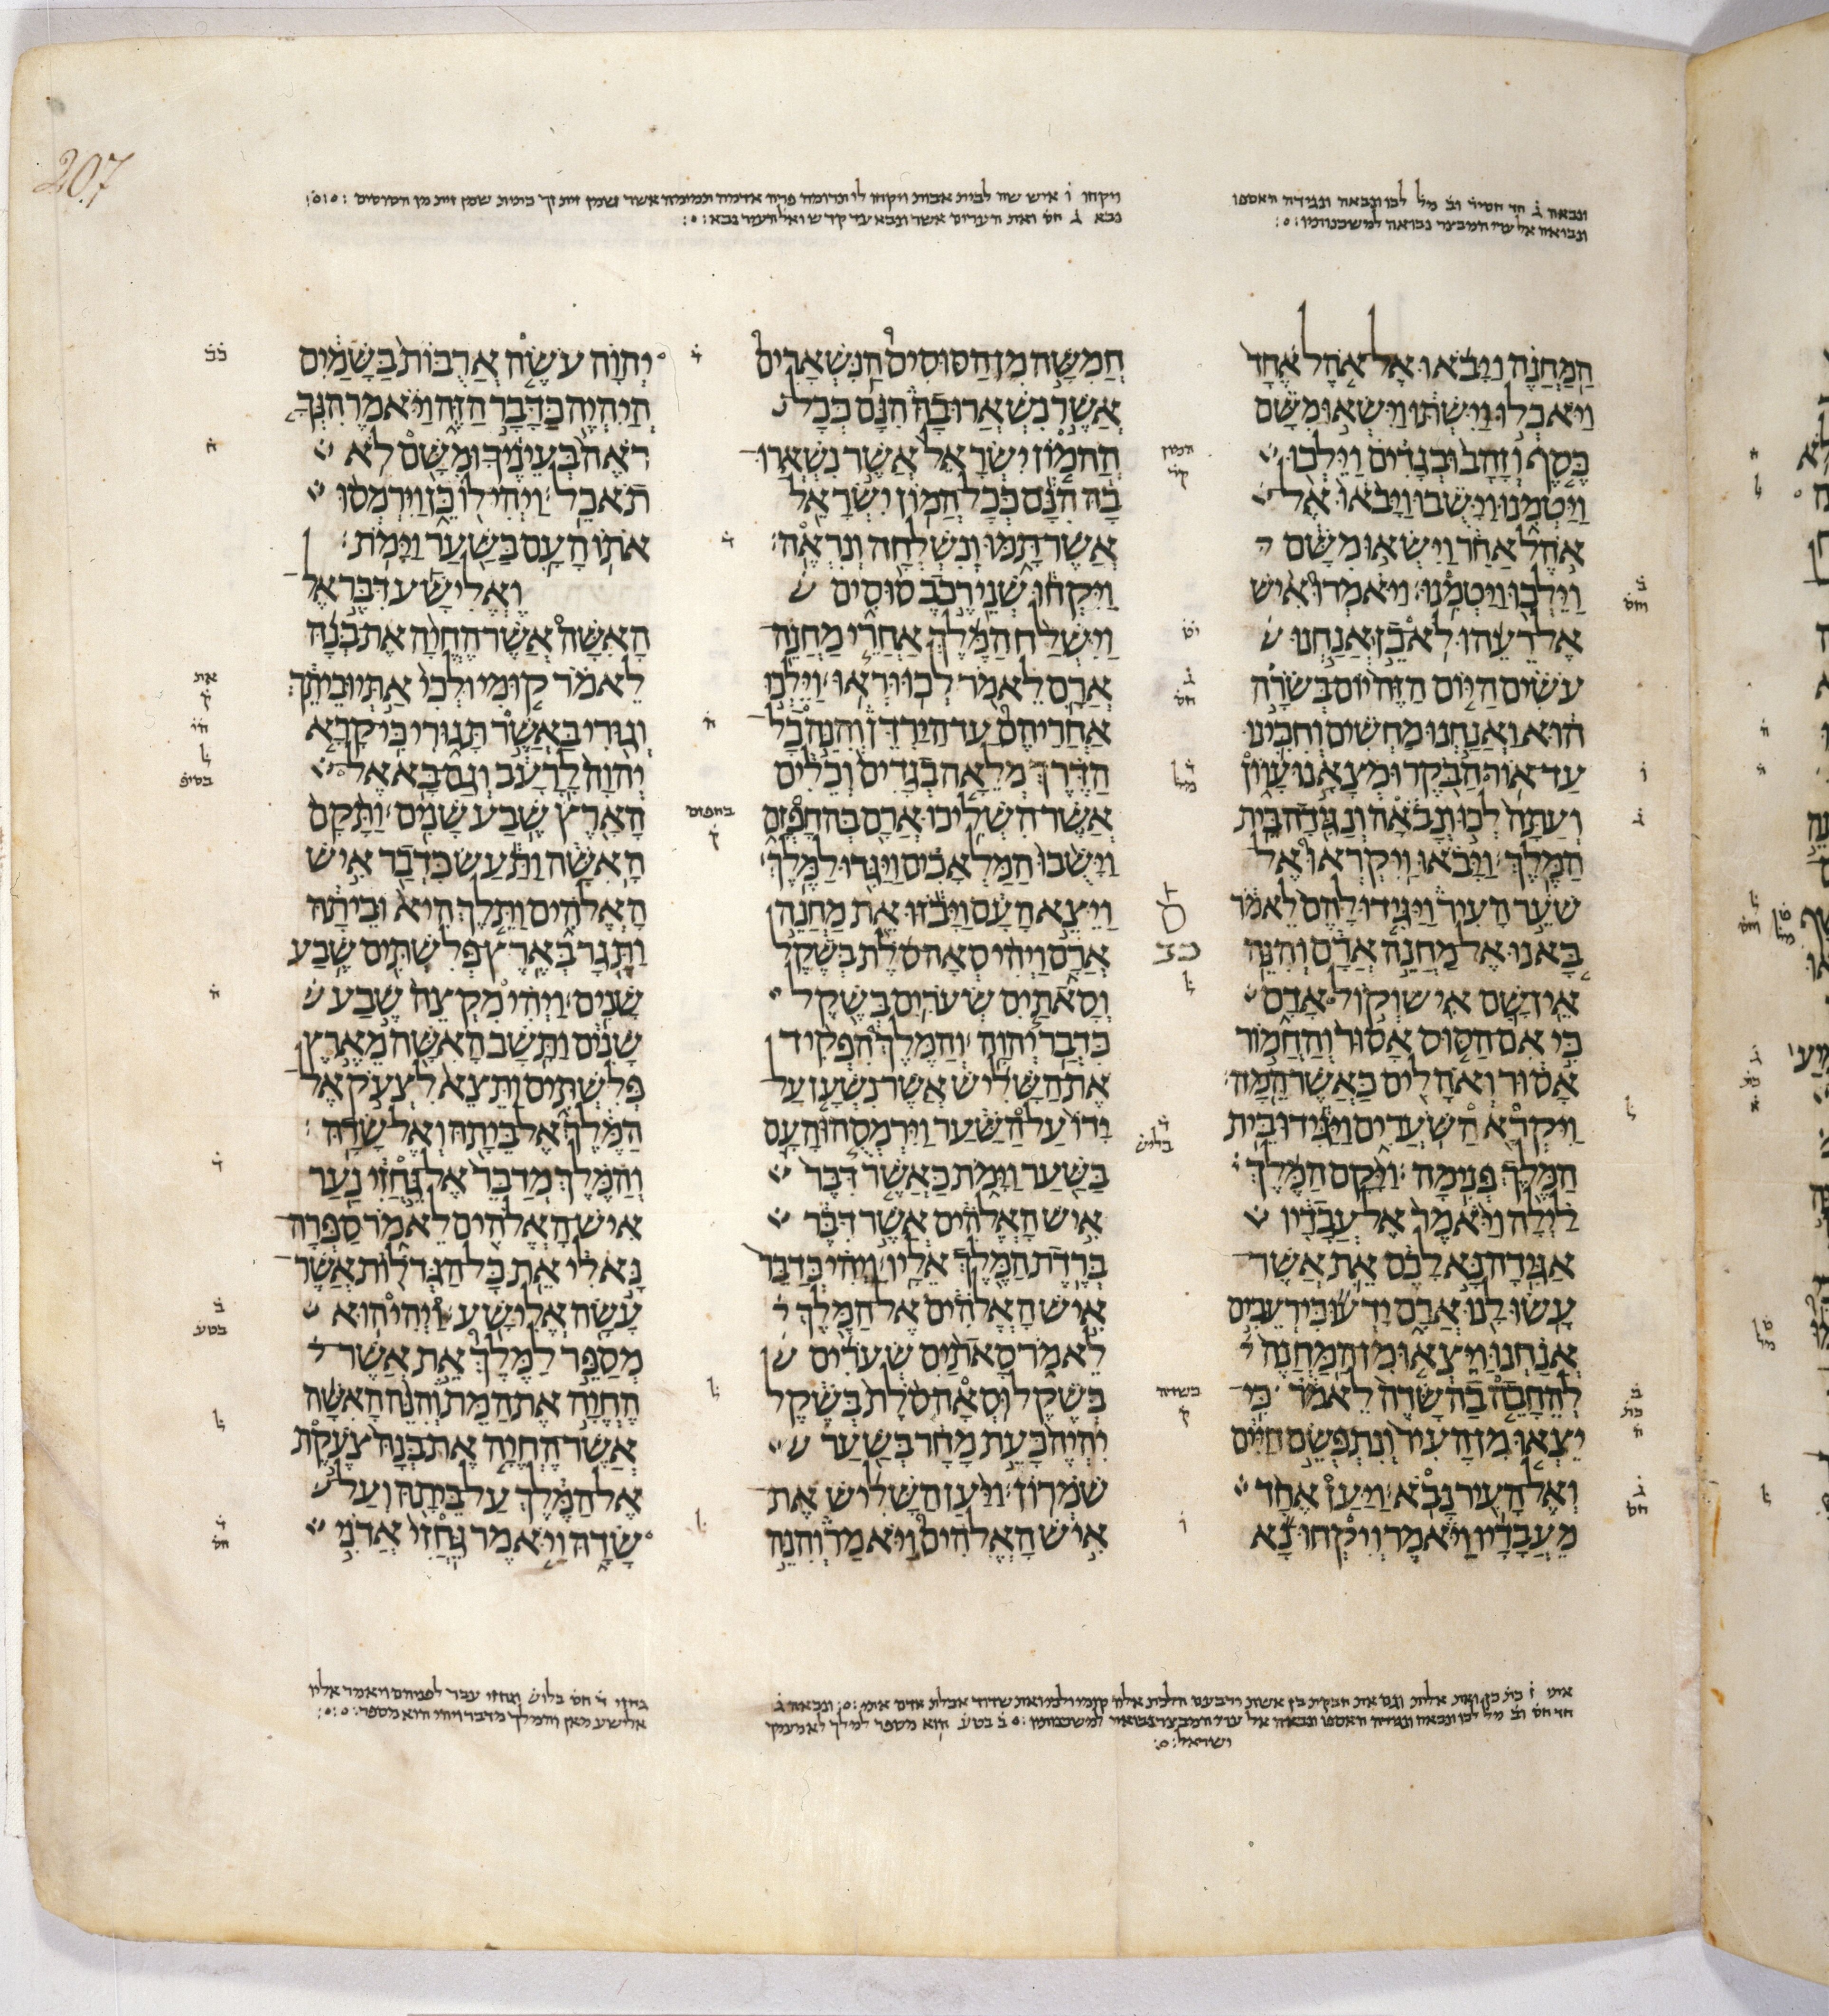 ונבאה ג חד חסיר וב מל לכו ונבאה ונגידה האספו
ונבואה אל ערי המבצר נבואה למשכנותיו
ויקחו ו איש שה לבית אבות ויקחו לי תרומה פרה אדמה תמימה אשר ושמן זית זך כתית שמן זית מן הסוסים
נבא ג חס ואת הערים אשר ונבא עד קדש ואל העיר נבא
המחנה ויבאו אל אהל אחד
ויאכלו וישתו וישאו משם
כסף וזהב ובגדים וילכו
ויטמנו וישבו ויבאו אל
אהל אחר וישאו משם
וילכו ויטמנו ויאמרו איש
אל רעהו לא כן אנחנו
עשים היום הזה יום בשרה
הוא ואנחנו מחשים וחכינו
עד אור הבקר ומצאנו עוון
ועתה לכו ונבאה ונגידה בית
המלך ויבאו ויקראו אל
שער העיר ויגידו להם לאמר
באנו אל מחנה ארם והנה
אין שם איש וקול אדם
כי אם הסוס אסור והחמור
אסור ואהלים כאשר המה
ויקרא השערים ויגידו בית
המלך פנימה ויקם המלך
לילה ויאמר אל עבדיו
אגידה נא לכם את אשר
עשו לנו ארם ידעו כי רעבים
אנחנו ויצאו מן המחנה
להחבה בהשדה לאמר כי
יצאו מן העיר ונתפשם חיים
ואל העיר נבא ויען אחד
מעבדיו ויאמר ויקחו נא
חמשה מן הסוסים הנשארים
אשר נשארו בה הנם ככל
ההמון ישראל אשר נשארו
בה הנם ככל המון ישראל
אשר תמו ונשלחה ונראה
ויקחו שני רכב סוסים
וישלח המלך אחרי מחנה
ארם לאמר לכו וראו וילכו
אחריהם עד הירדן והנה כל
הדרך מלאה בגדים וכלים
אשר השליכו ארם בהחפזם
וישבו המלאכים ויגדו למלך
ויצא העם ויבזו את מחנה
ארם ויהי סאה סלת בשקל
וסאתים שערים בשקל
כדבר יהוה והמלך הפקיד
את השליש אשר נשען על
ידו על השער וירמסהו העם
בשער וימת כאשר דבר
איש האלהים אשר דבר
ברדת המלך אליו ויהי כדבר
איש האלהים אל המלך
לאמר סאתים שערים
בשקל וסאה סלת בשקל
יהיה כעת מחר בשער
שמרון ויען השליש את
איש האלהים ויאמר והנה
יהוה עשה ארבות בשמים
היהיה כדבר הזה ויאמר הנך
ראה בעיניך ומשם לא
תאכל ויהי לו כן וירמסו
אתו העם בשער וימת
ואלישע דבר אל
האשה אשר החיה את בנה
לאמר קומי ולכי אתי וביתך
וגורי באשר תגורי כי קרא
יהוה לרעב וגם בא אל
הארץ שבע שנים ותקם
האשה ותעש כדבר איש
האלהים ותלך היא וביתה
ותגר בארץ פלשתים שבע
שנים ויהי מקצה שבע
שנים ותשב האשה מארץ
פלשתים ותצא לצעק אל
המלך אל ביתה ואל שדה
והמלך מדבר אל גחזי נער
איש האלהים לאמר ספרה
נא לי את כל הגדלות אשר
עשה אלישע ויהי הוא
מספר למלך את אשר
החיה את המת והנה האשה
אשר החיה את בנה צעקת
אל המלך על ביתה ועל
שדה ויאמר גחזי אדני
גחזי ד חס בליש וגחזי עבר לפניהם ויאמר אליו
אלישע מאן והמלך מדבר ויהי הוא מספר
207